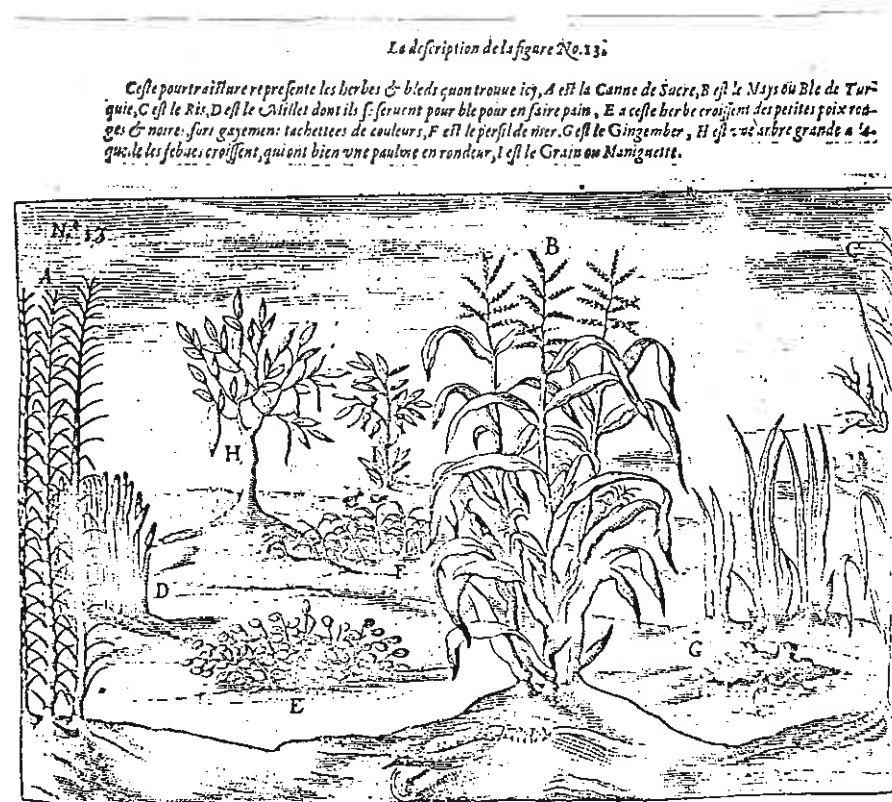 La description de la figure No. 13.
Ceste pourtraicture represente les herbes & bleds qu'on trouue icy, A est la Canne de Sucre, B est le Mays ou Ble de Tur-
quie, C est le Ris, D est le Millet dont ils se seruent pour ble pour en faire pain, E a ceste herbe croissent des petites poix rou-
ges & noires fort gayement tachettees de couleurs, F est le persil de mer. G est le Gingember, H est vne arbre grande a la-
quelle les febues croissent, qui ont bien vne paulme en rondeur, I est le Grain ou Maniguette.
No. 13
A
B
C
H
I
D
F
G
E